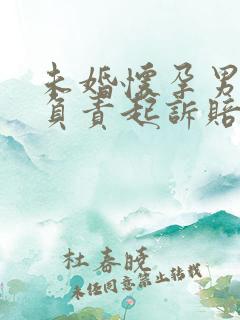 未婚懷孕男
負責起訴賠
杜春晓
未经同意禁止转载